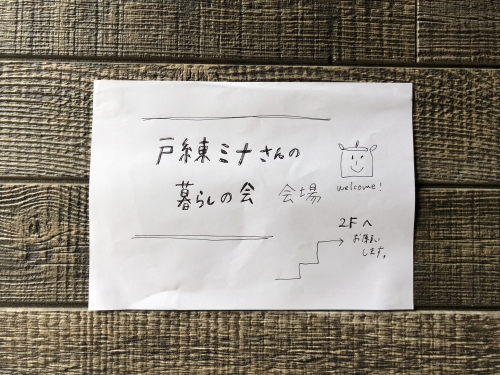 戸練ミナさんの
暮らしの会 会場
welcome!
2Fへ
お願い
します。